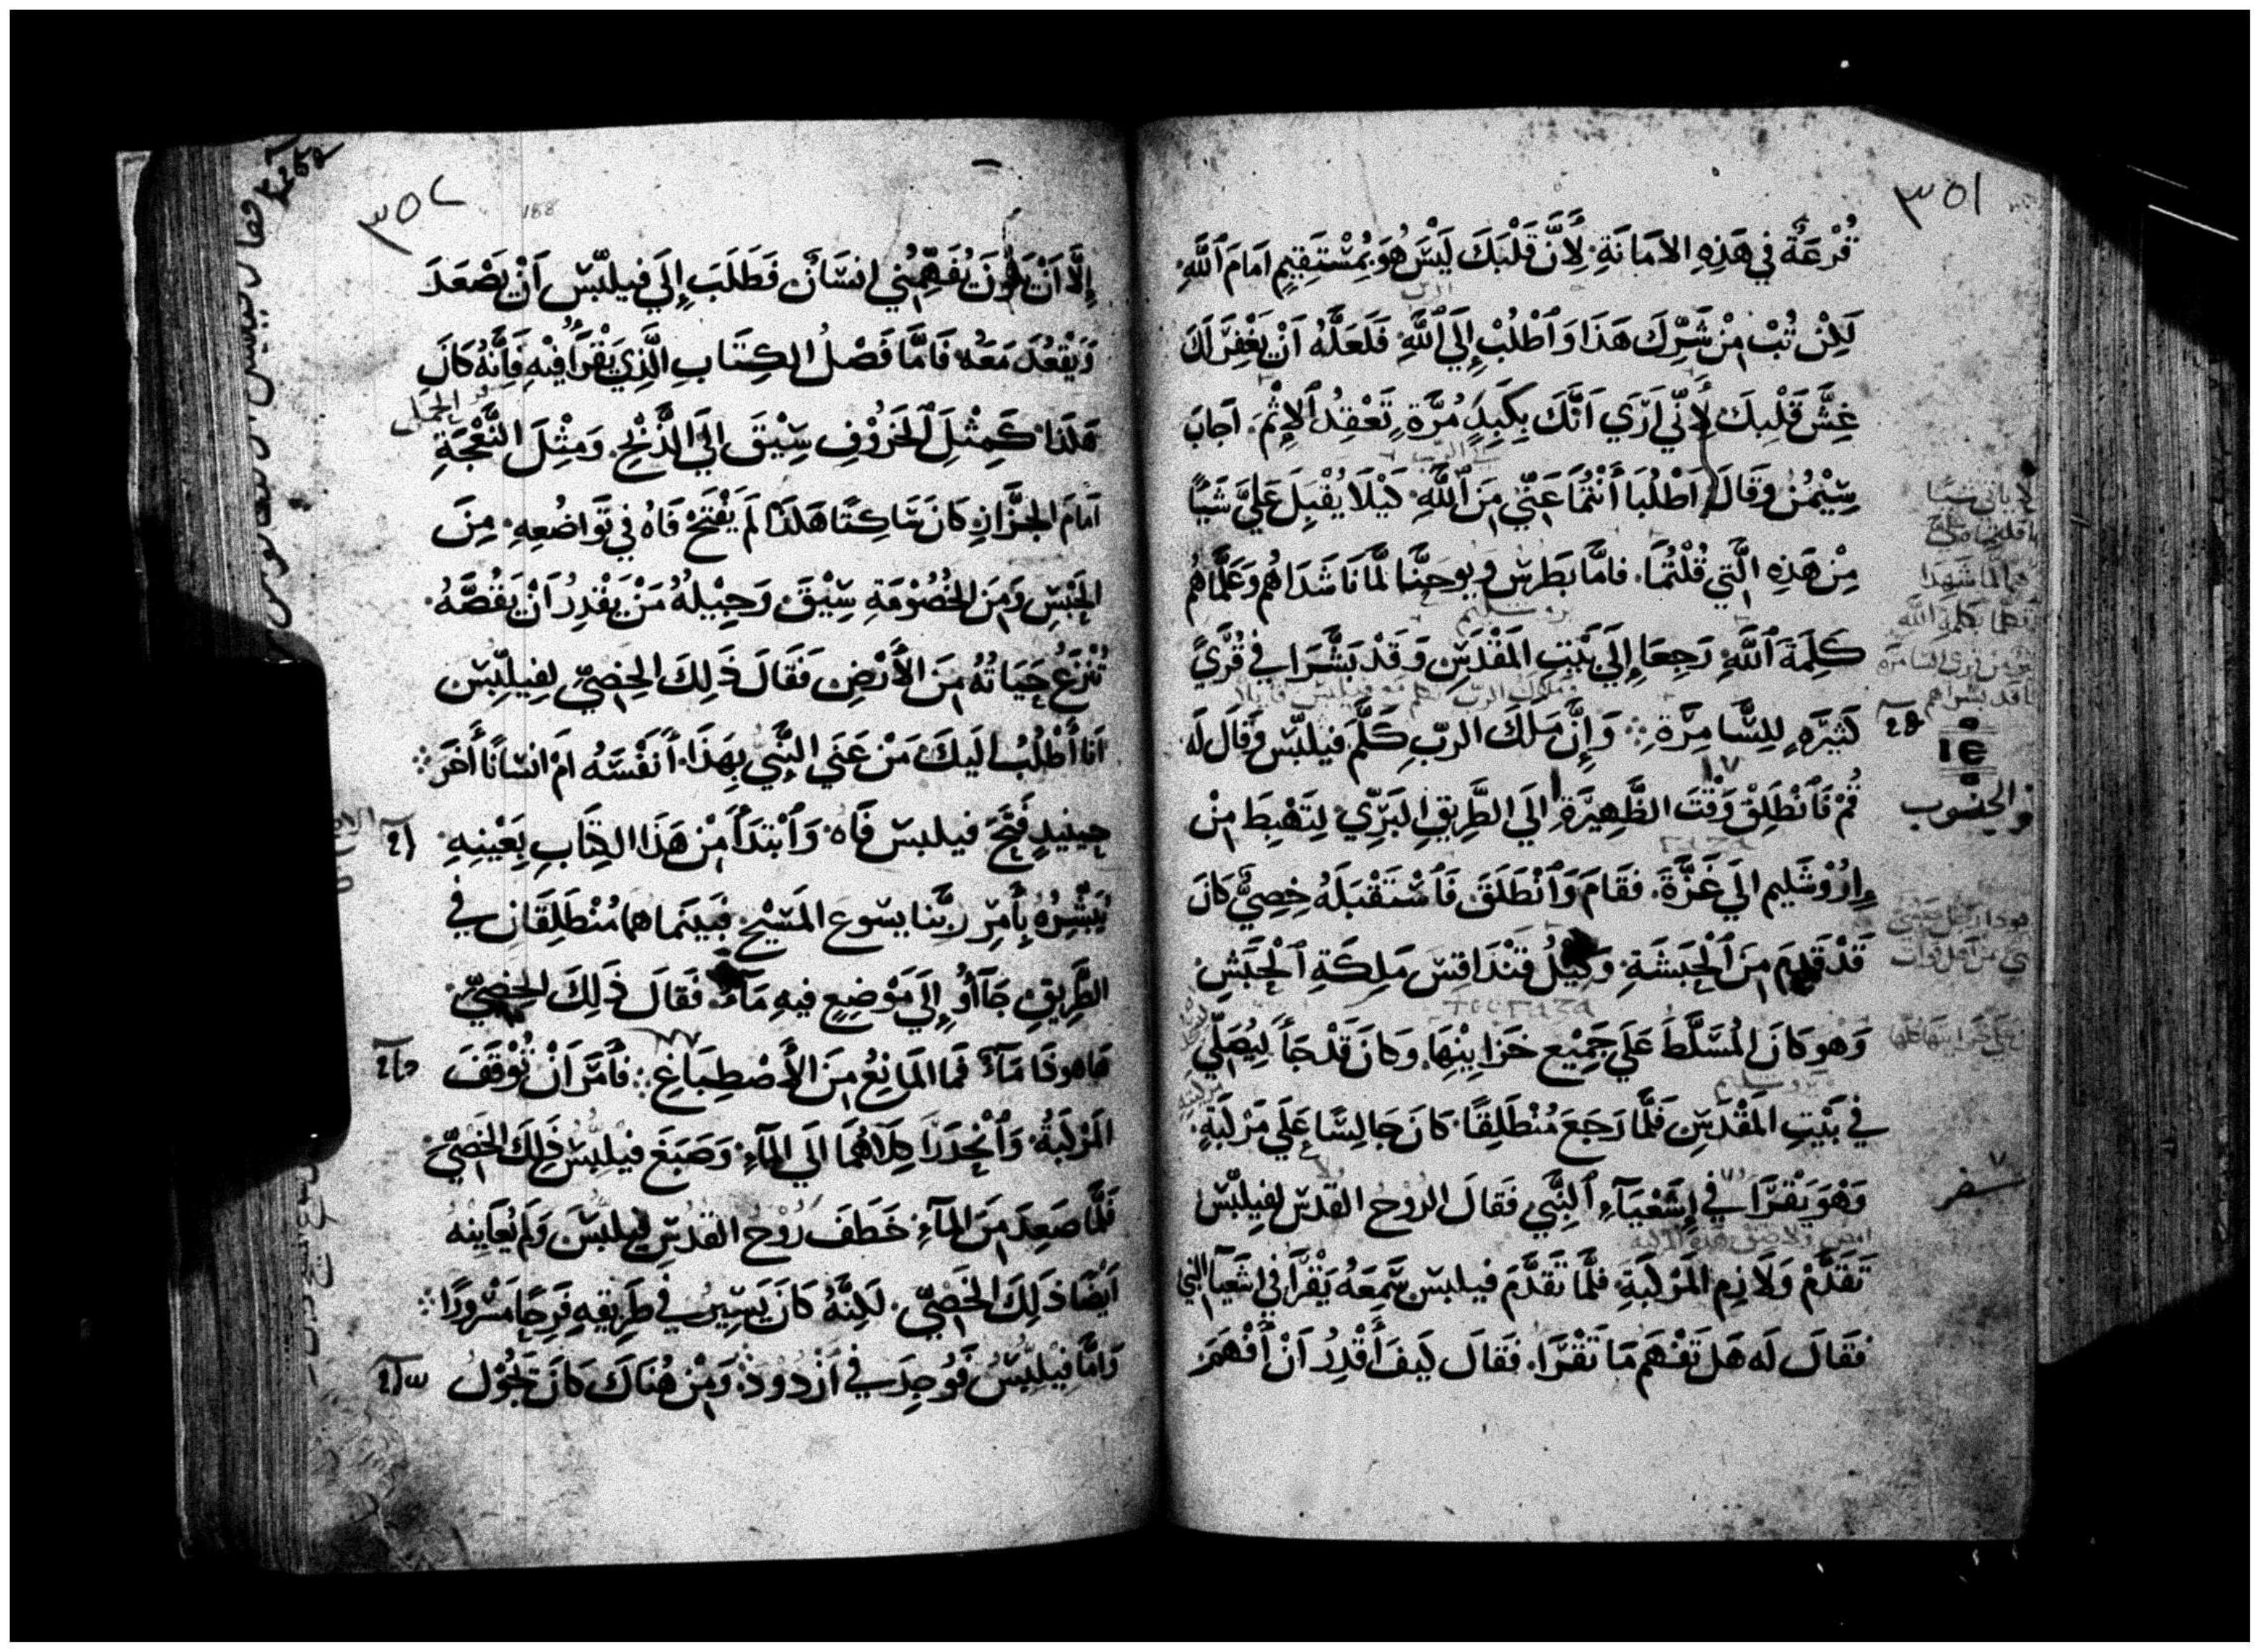 ٣٥١
قُرْعَةٌ فِي هَذِهِ الامَانَةِ. لِأَنَّ قَلْبَكَ لَيْسَ هُوَ بِمُسْتَقِيمٍ امَامَ ٱللَّهِ.
لَكِنْ تُبْ مِنْ شَرِّكَ هَذَا وَٱطْلُبْ إِلَي ٱللَّهِ فَلَعَلَّهُ اَنْ يَغْفِرَ لَكَ
غِشَّ قَلْبِكَ لِأَنِّي اَرَي اَنَّكَ بِكَبِدٍ مُرَّةٍ تَعْقِدُ ٱلاِثْمَ. اَجابَ
سِيْمُنْ وَقَالَ اَطْلُبَا أَنْتُمَا عَنِّي مِنَ ٱللَّهِ. كَيْلَا يُقْبِلَ عَلَيَّ شَيًا
مِنْ هَذِهِ الَّتِي قُلْتُمَا. فامَّا بَطَرس وَيوحَنَّا لَمَّا نَاشَدَاهُم وَعَلَّمَاهُم
كَلِمَةَ ٱللَّهِ رَجِعَا إِلَي بَيْتِ المَقْدِسِ وَقَدْ بَشَّرَا في قُرًي
كَثِيرَهٍ لِلسَّامِرَّةِ ܀ وَإِنَّ مَلَكَ الرّبِ كَلَّمَ فيلبّس وَقَالَ لَه
قُمْ فَٱنْطَلِقْ وَقْتَ الظَّهِيرَةِ الَي الطَّرِيقِ البَرِّيّ لِتَهْبِطَ مِنْ
اِرُوْشَلِيم الَي غَزَّةَ. فقَامَ وَٱنْطَلَقَ فَٱسْتَقْبَلَهُ خِصِيٌّ كَانَ
قَدْ قَدِمَ مِنَ ٱلْحَبَشَةِ. وَكِيْلُ قَنْدَاقِسَ مَلِكَةِ ٱلْحَبَشِ
وَهوَ كانَ المُسَلَّطَ عَلَي جَمِيْعِ خَزايِنِهَا. وَكانَ قَدْ جَأَ لِيُصَلِّي
في بَيْتِ المَقْدَسِ فَلَمَّا رَجَعَ مُنْطَلِقًا. كانَ جَالِسًا عَلَي مَرْكَبَةٍ.
وَهْوَ يَقْرَا في إِشَعْيَآءِ ٱلنَّبِي فَقالَ الرُوْحُ القُدس لِفِيلِبّس
تَقَدَّمْ وَلَازِم المَرْكَبَةِ. فلَمَّا تَقَدَّمَ فيلبس سَمِعَهُ يَقْرَأ في اشَعيَآ النبي
فقَالَ لَه هَل تَفْهَم مَا تَقْرَا. فَقَالَ كَيفَ أَقْدِرُ اَنْ أَفْهَمَ
والجنوب
سفر
٣٥٢
188
إِلَّا اَنْ يَكُونَ يُفَهِّمُني انسَانٌ فَطَلَبَ إِلَي فيلبّس اَنْ يَصْعَدَ
وَيَقْعُدَ مَعَه. فَامَّا فَصْلُ الكِتَابِ الَّذِي يَقْرَأُ فِيْهِ فَانَّهُ كانَ
هَكَذا. كَمِثْلِ ٱلخَرُوْفِ سِيْقَ الَي الذَّبْحِ. وَمِثْلَ النَّعْجَةِ
الحمل
اَمَامَ الجَزَّارِ كَانَ سَاكِتًا هَكَذَا لَمْ يَفْتَحْ فَاهُ في تَوَاضُعِهِ. مِنَ
الحَبْسِ وَمِنَ الخُصُوْمَةِ سِيْقَ. وَجِيْلُهُ مَنْ يَقْدِرُ اَنْ يَقُصَّهُ.
تُنْزَعُ حَيَاتُهُ مِنَ الأَرْضِ فَقَالَ ذَلِكَ الخِصِيّ لِفِيلِبّس
اَنا أَطْلُبُ الَيكَ مَنْ عَنَي النَّبِيُّ بِهَذَا. أَنَفْسَهُ اَمْ انسَانًا أَخَرَ ܀
حِينيذٍ فَتَحَ فيلبس فَاه. وَٱبْتَدَأَ مِنْ هَذَا الكِتَابِ بِعَيْنِهِ
يُبَشِّرُهُ بِأَمِرِ ربّنا يسوع المَسِيْحِ. فَبَينَما هما مُنْطَلِقَانِ في
الطَّرِيقِ جَآأُو إِلَي مَوْضِعٍ فيهِ مَآء. فَقَالَ ذَلِكَ الخِصِيّ.
هَاهوذَا مَآءٌ فَما المَانِعُ مِنَ الأَصْطِبَاغِ ܀ فَأَمَرَ اَنْ تُوْقَفَ
المَرْكَبَةُ. وَٱنْحَدَرَا كِلَاهُمَا الَي المَآءِ. وَصَبَغَ فيلبسُ ذَلِكَ الخِصِيّ.
فَلَمَّا صَعِدَ مِنَ المَآءِ خَطَفَ رُوْحُ القدُسِ فيلبسَ وَلم يُعَاينهُ
اَيْضًا ذَلِكَ الخَصِيّ. لَكِنَّهُ كَانَ يَسِيرُ في طَرِيقِهِ فَرِحًا مَسْرورًا ܀
وَامَّا فِيلِبّسُ فَوُجِدَ في اَزْدُوْدَ. وَمِنْ هُنَاكَ كَانَ يَجُوْلُ